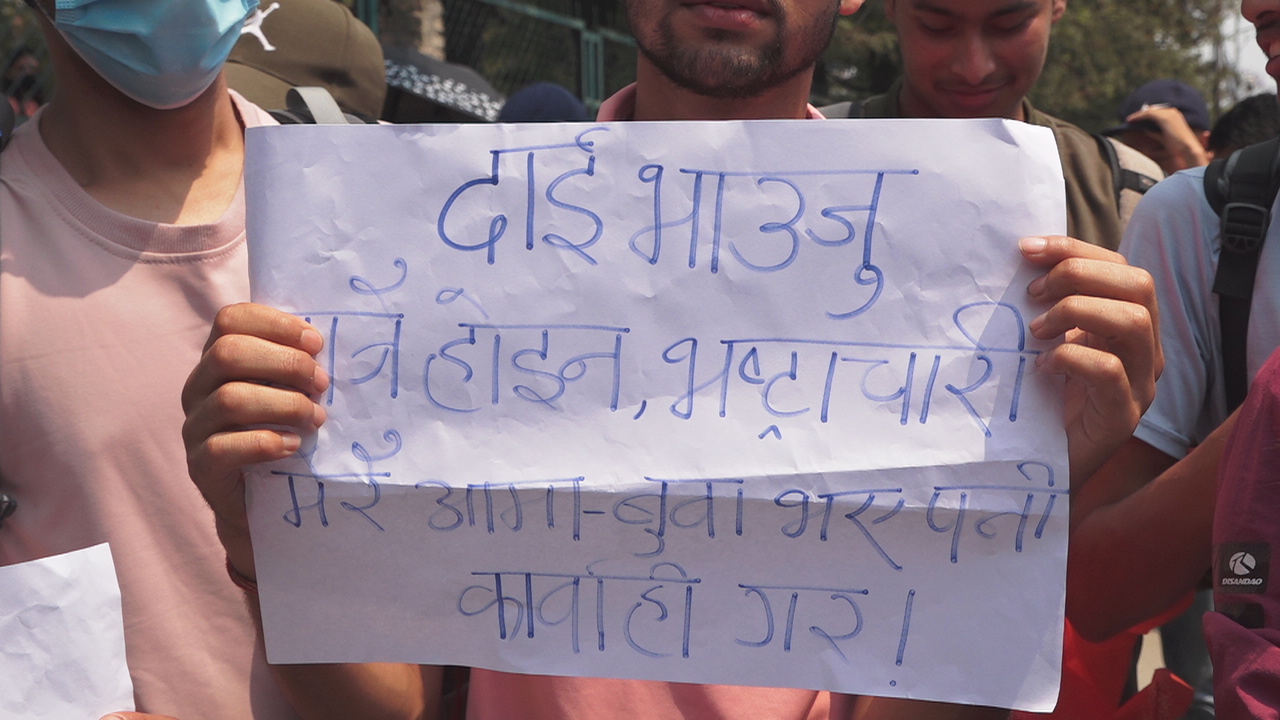 दाई भाउजु
मात्रै होइन, भ्रष्ट्राचारी
मेरै आमा-बुवा भए पनी
कार्वाही गर!
DISANDAO